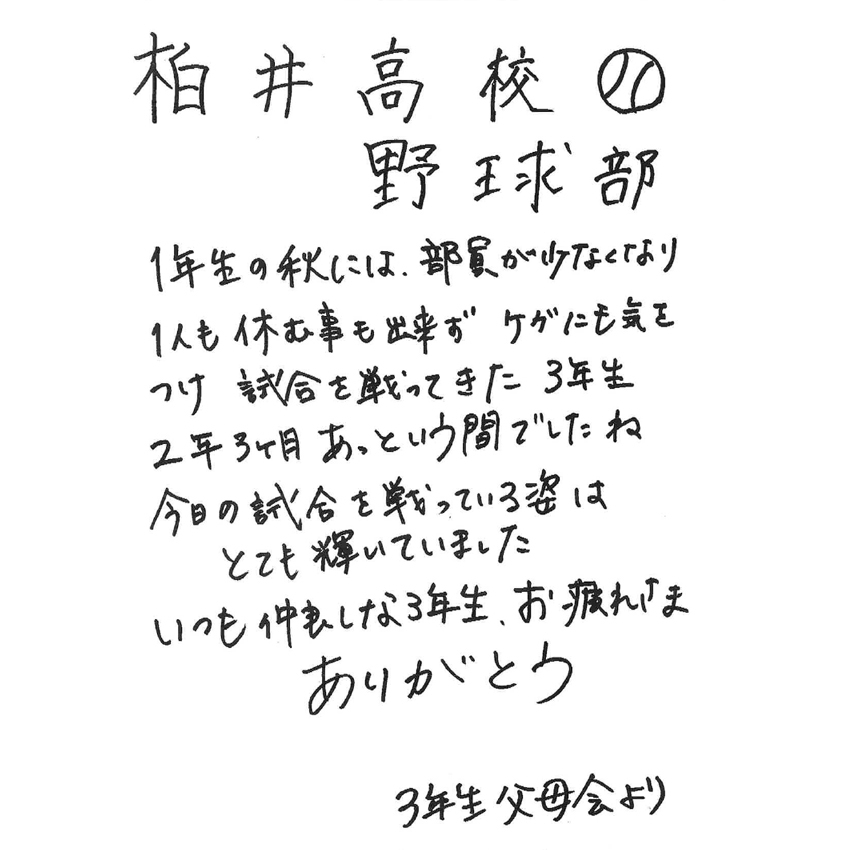 柏井高校
野球部
1年生の秋には、部員が少なくなり
1人も休む事も出来ず ケガにも気を
つけ 試合を戦ってきた 3年生
2年3ヶ月 あっという間でしたね
今日の試合を戦っている姿は
とても輝いていました
いつも仲良しな3年生、お疲れさま
ありがとう
3年生父母会より